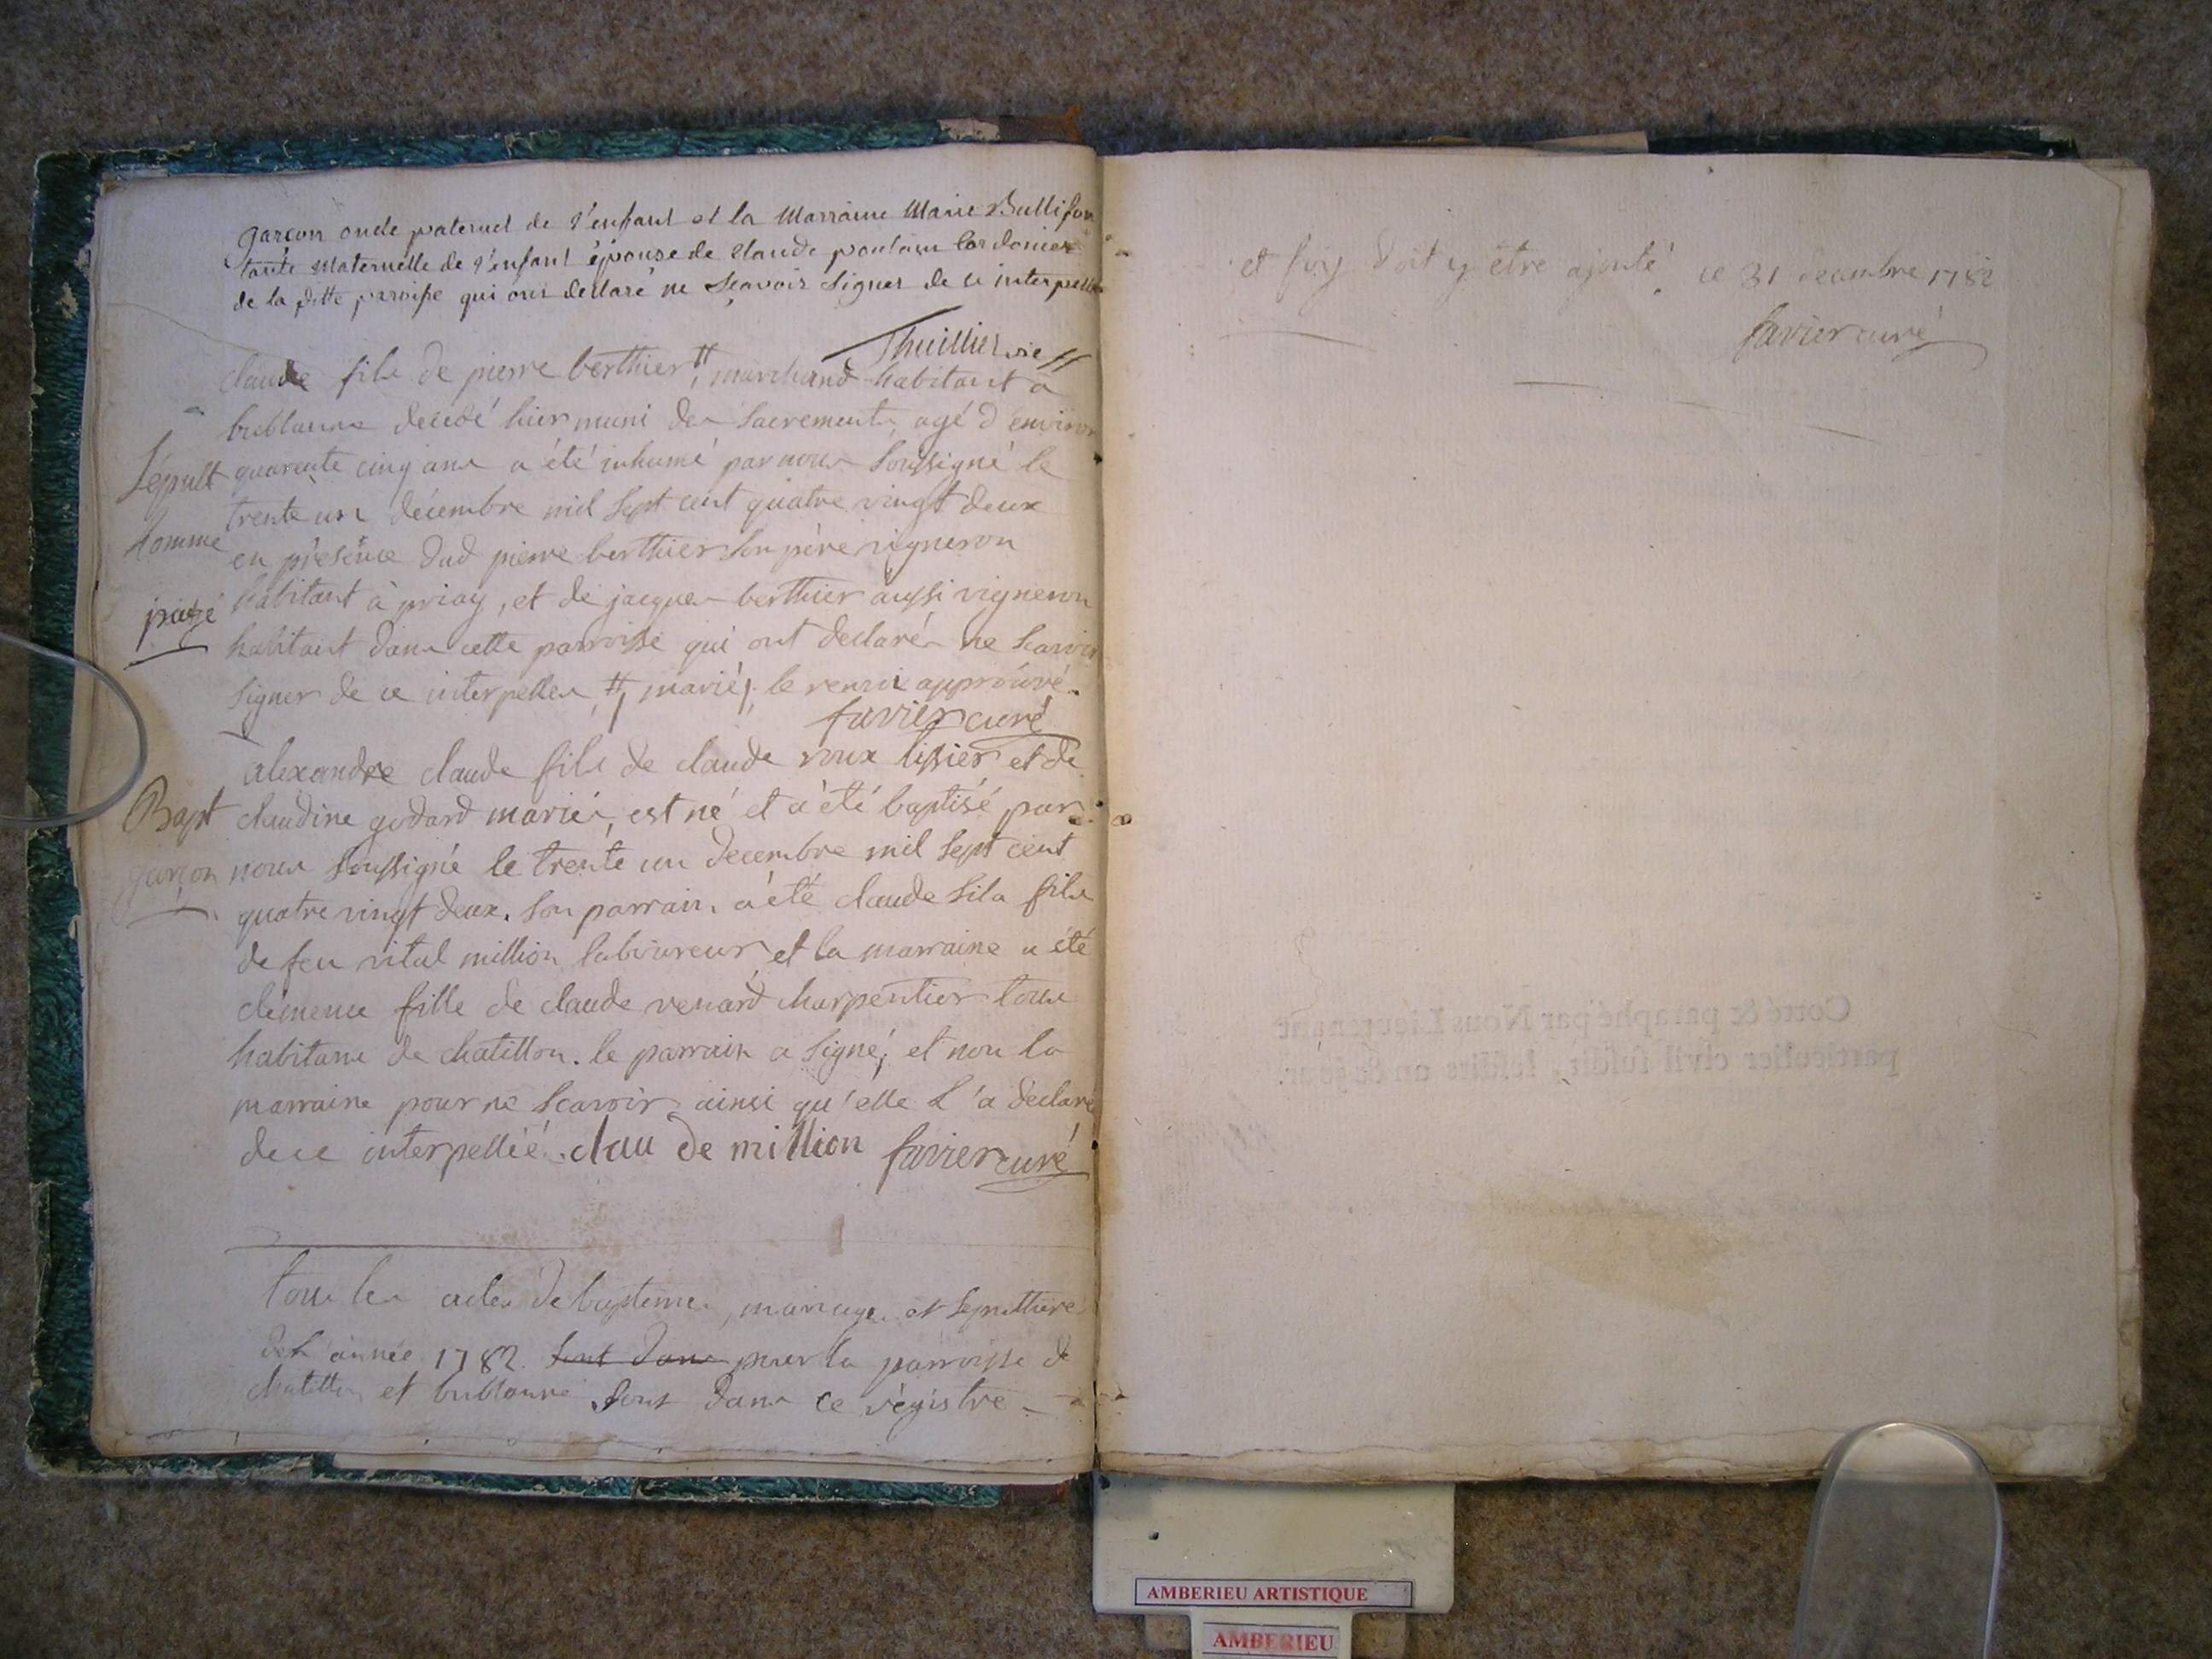 garçon oncle paternel de l'enfant et la Marraine Marie Bullifon
tante Maternelle de l'enfant épouse de Claude poulain Cordonier
de la ditte paroisse qui ont declaré ne Scavoir Signer de ce interpellés
Thuillier vic
claude fils de pierre berthier #, marchand habitant à
bublanne decedé hier muni des Sacrements, agé d'environ
Sépult quarente cinq ans a été inhumé par nous Soussigné le
trente un décembre mil Sept cent quatre vingt deux
homme en présence dud pierre berthier Son père vigneron
piagé habitant à priay, et de jacques berthier aussi vigneron
habitant dans cette parroisse qui ont declarés ne Scavoir
Signer de ce interpelles, #, marié, le renvoi approuvé.
favier curé
alexandre claude fils de claude roux tissier et de
Bapt claudine godard mariés, est né et a été baptisé par
garçon nous Soussigné le trente un decembre mil Sept cent
quatre vingt deux. Son parrain a été claude fils
de feu vital million laboureur et la marraine a été
clémence fille de claude renard charpentier tous
habitans de chatillon. le parrain a Signé, et non la
marraine pour ne Scavoir ainsi qu'elle l'a déclaré
de ce interpellée. clau de million favier curé
tous les actes de baptemes, mariages et Sepulture
de l'année 1782. Sont dans pour la parroisse de
chatillon et bublanne Sont dans ce régistre
et foy doit y être ajouté. ce 31 decembre 1782
favier curé
Cotté & paraphé par Nous Lieutenant
particulier civil susdit, lesdits an & jour.
AMBERIEU ARTISTIQUE
AMBERIEU